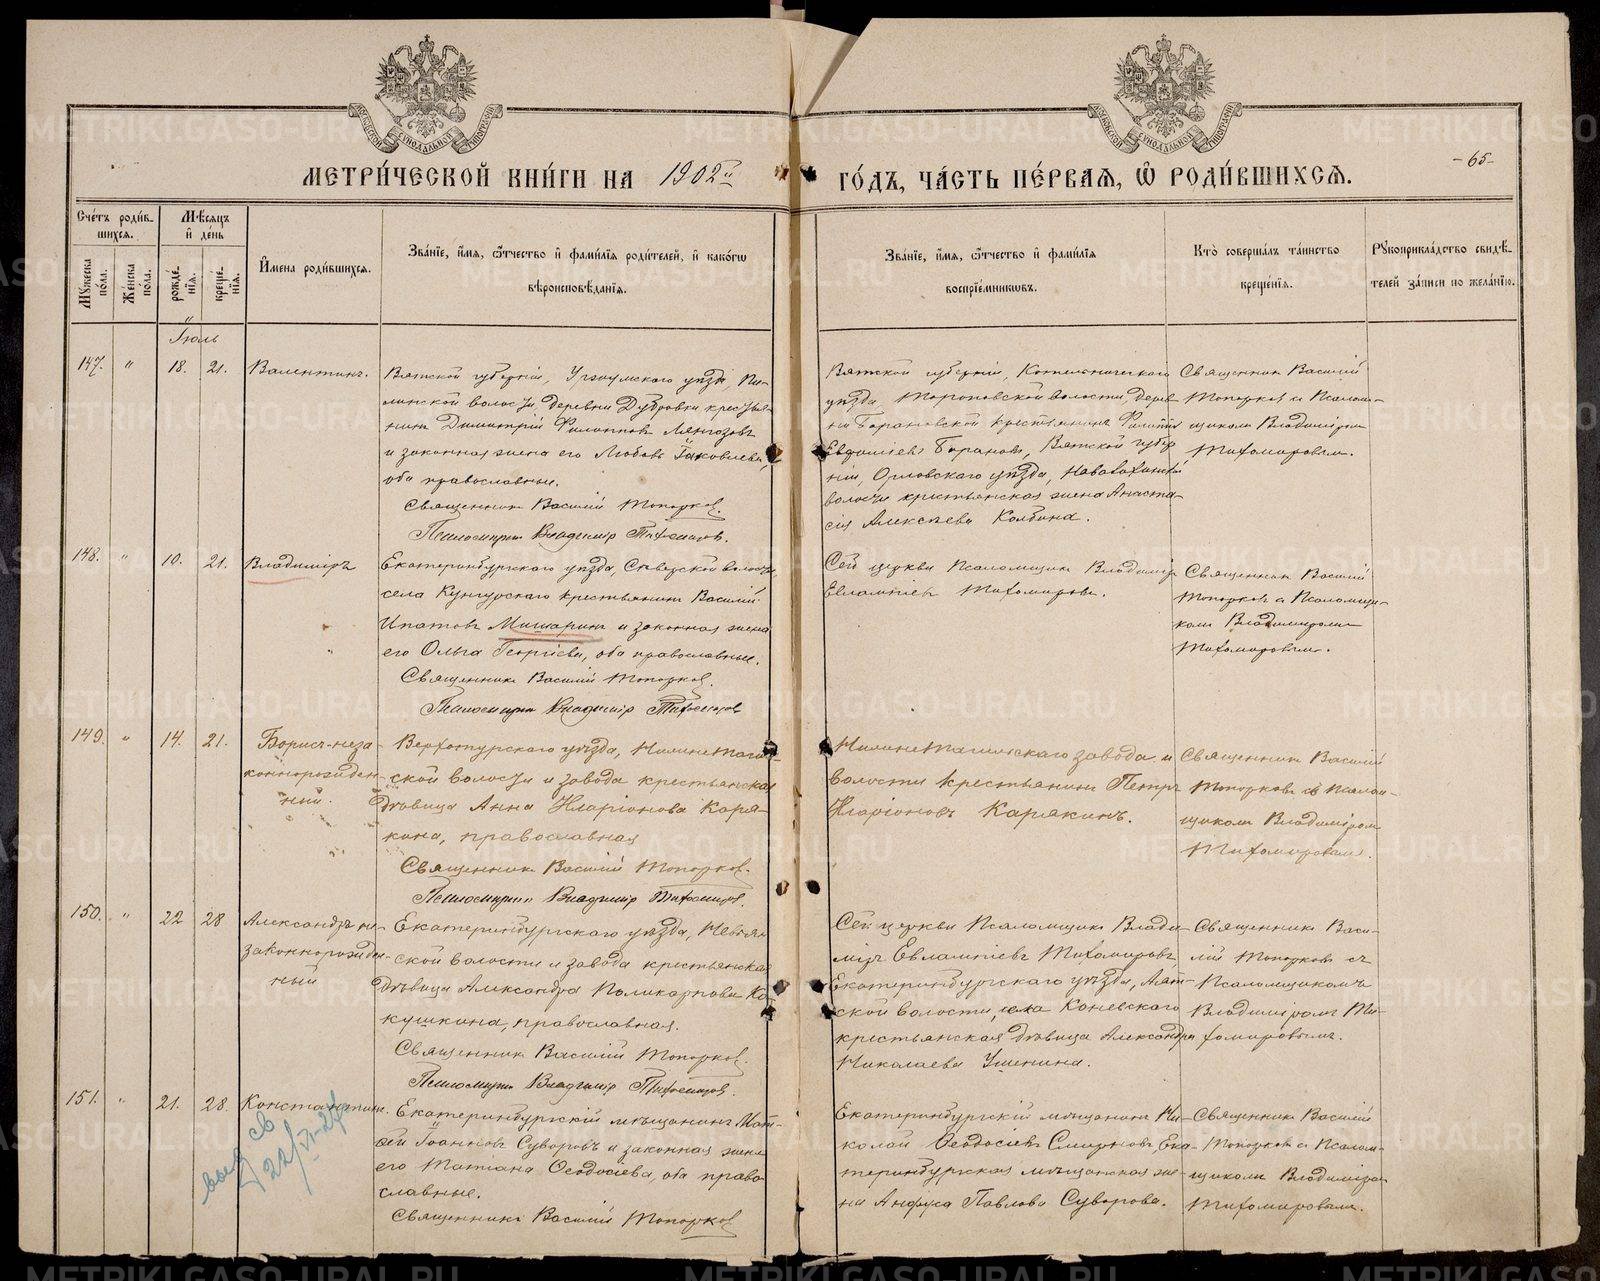 МЕТРИ́ЧЕСКОЙ КНИ́ГИ НА 1902й ГО́ДЪ, ЧА́СТЬ ПЕ́РВАЯ, Ѿ РОДИ́ВШИХСЯ.
-65-
Сче́тъ роди́в-
шихся.
Мꙋ́жеска по́ла.
Же́нска по́ла.
Мѣ́сяцъ и҆ де́нь
рожде́нїя.
креще́нїя.
И҆́мена роди́вшихся.
Зва́нїе, и҆́мя, ѻ҆́тчество и҆ фами́лїя роди́телей, и҆ како́гѡ
вѣроисповѣ́данїя.
Зва́нїе, и҆́мя, ѻ҆́тчество и҆ фами́лїя
воспрїе́мникѡвъ.
Кто̀ соверша́лъ та́инство
креще́нїя.
Рꙋкоприкла́дство свидѣ́-
телей за́писи по жела́нїю.
Іюль
147.
"
18.
21.
Валентинъ.
Вятской губерніи, Уржумского уѣзда,
волости деревни Дубровки крестья-
нинъ Димитрій Филипповъ
и законная жена его Любовь Іаковлева,
оба православные.
Священникъ Василій Топорковъ.
Псаломщикъ Владиміръ Тихомировъ.
Вятской губерніи, Котельничского
уѣзда, Тороповской волости дерев-
ни Барановской крестьянинъ Филиппъ
Барановъ, Вятской губер
ніи, Орловскаго уѣзда,
волости крестьянская жена Анаста-
сія Алексѣева Колбина.
Священникъ Василій
Топорковъ съ Псалом-
щикомъ Владиміромъ
Тихомировымъ.
148.
"
10.
21.
Владиміръ
Екатеринбургскаго уѣзда, волости,
села Кунгурскаго крестьянинъ Василій
Ипатовъ Мишаринъ и законная жена
его Ольга Георгіева, оба православные.
Священникъ Василій Топорковъ.
Псаломщикъ Владиміръ Тихомировъ
Сей церкви Псаломщикъ Владиміръ
Евлампіевъ Тихомировъ.
Священникъ Василій
Топорковъ съ Псаломщи-
комъ Владиміромъ
Тихомировымъ.
149.
"
14.
21.
Борисъ-неза-
коннорожден-
ный.
Верхотурскаго уѣзда, Нижнетагил-
ской волости и завода крестьянская
дѣвица Анна Иларіонова Каря-
кина, православная
Священникъ Василій Топорковъ.
Псаломщикъ Владиміръ Тихомировъ.
Нижнетагильскаго завода и
волости крестьянинъ Петръ
Иларіоновъ Карякинъ.
Священникъ Василій
Топорковъ съ Псалом-
щикомъ Владиміромъ
Тихомировымъ.
150.
"
22
28
Александръ не-
законнорожден-
ный
Екатеринбургскаго уѣзда, Невьян
ской волости и завода крестьянская
дѣвица Александра Поликарпова Ко-
кушкина, православная.
Священникъ Василій Топорковъ.
Псаломщикъ Владиміръ Тихомировъ.
Сей церкви Псаломщикъ Влади-
міръ Евлампіевъ Тихомировъ,
Екатеринбургскаго уѣзда, Аят-
ской волости, села Коневскаго
крестьянская дѣвица Александра
Николаева Ушенина.
Священникъ Васи-
лій Топорковъ съ
Псаломщикомъ
Владиміромъ Ти-
хомировымъ.
151.
"
21.
28.
Константинъ.
выд. св
22/VI-24
Екатеринбургскій мѣщанинъ Мат-
ѳей Іоанновъ Суворовъ и законная жена
его Татіана Ѳеодосіева, оба право-
славные.
Священникъ Василій Топорковъ
Екатеринбургскій мѣщанинъ Ни-
колай Ѳеодосіевъ Смирновъ, Ека-
теринбургская мѣщанская же-
на Анфуса Павлова Суворова.
Священникъ Василій
Топорковъ съ Псалом-
щикомъ Владиміромъ
Тихомировымъ.
METRIKI.GASO-URAL.RU